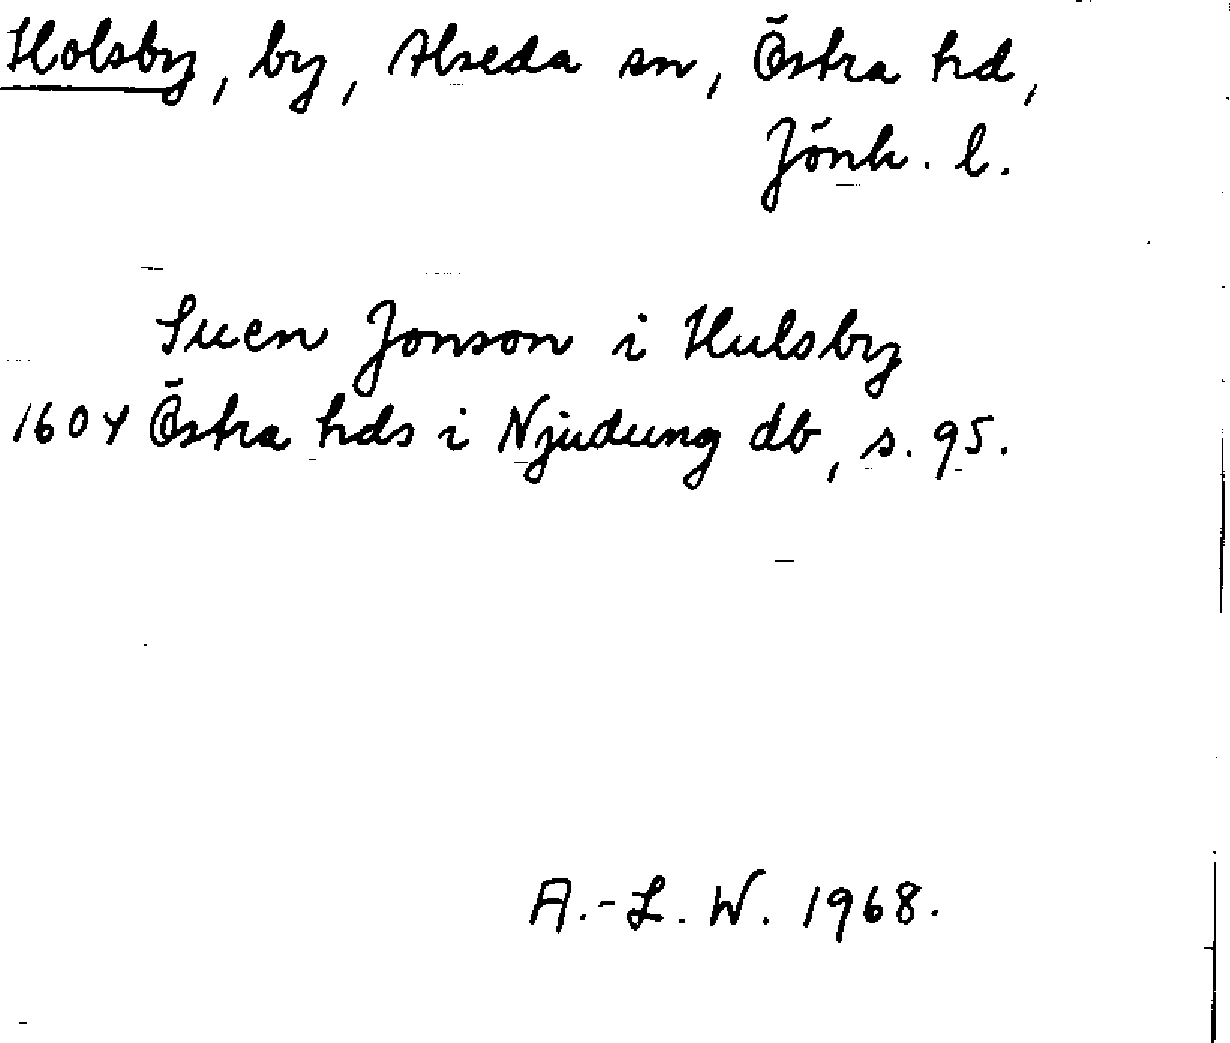 Holsby, by, Alseda sn, Östra hd,
Jönk. l.
Suen Jonson i Hulsby
1604 Östra hds i Njudung db, s. 95.
A.-L. W. 1968.